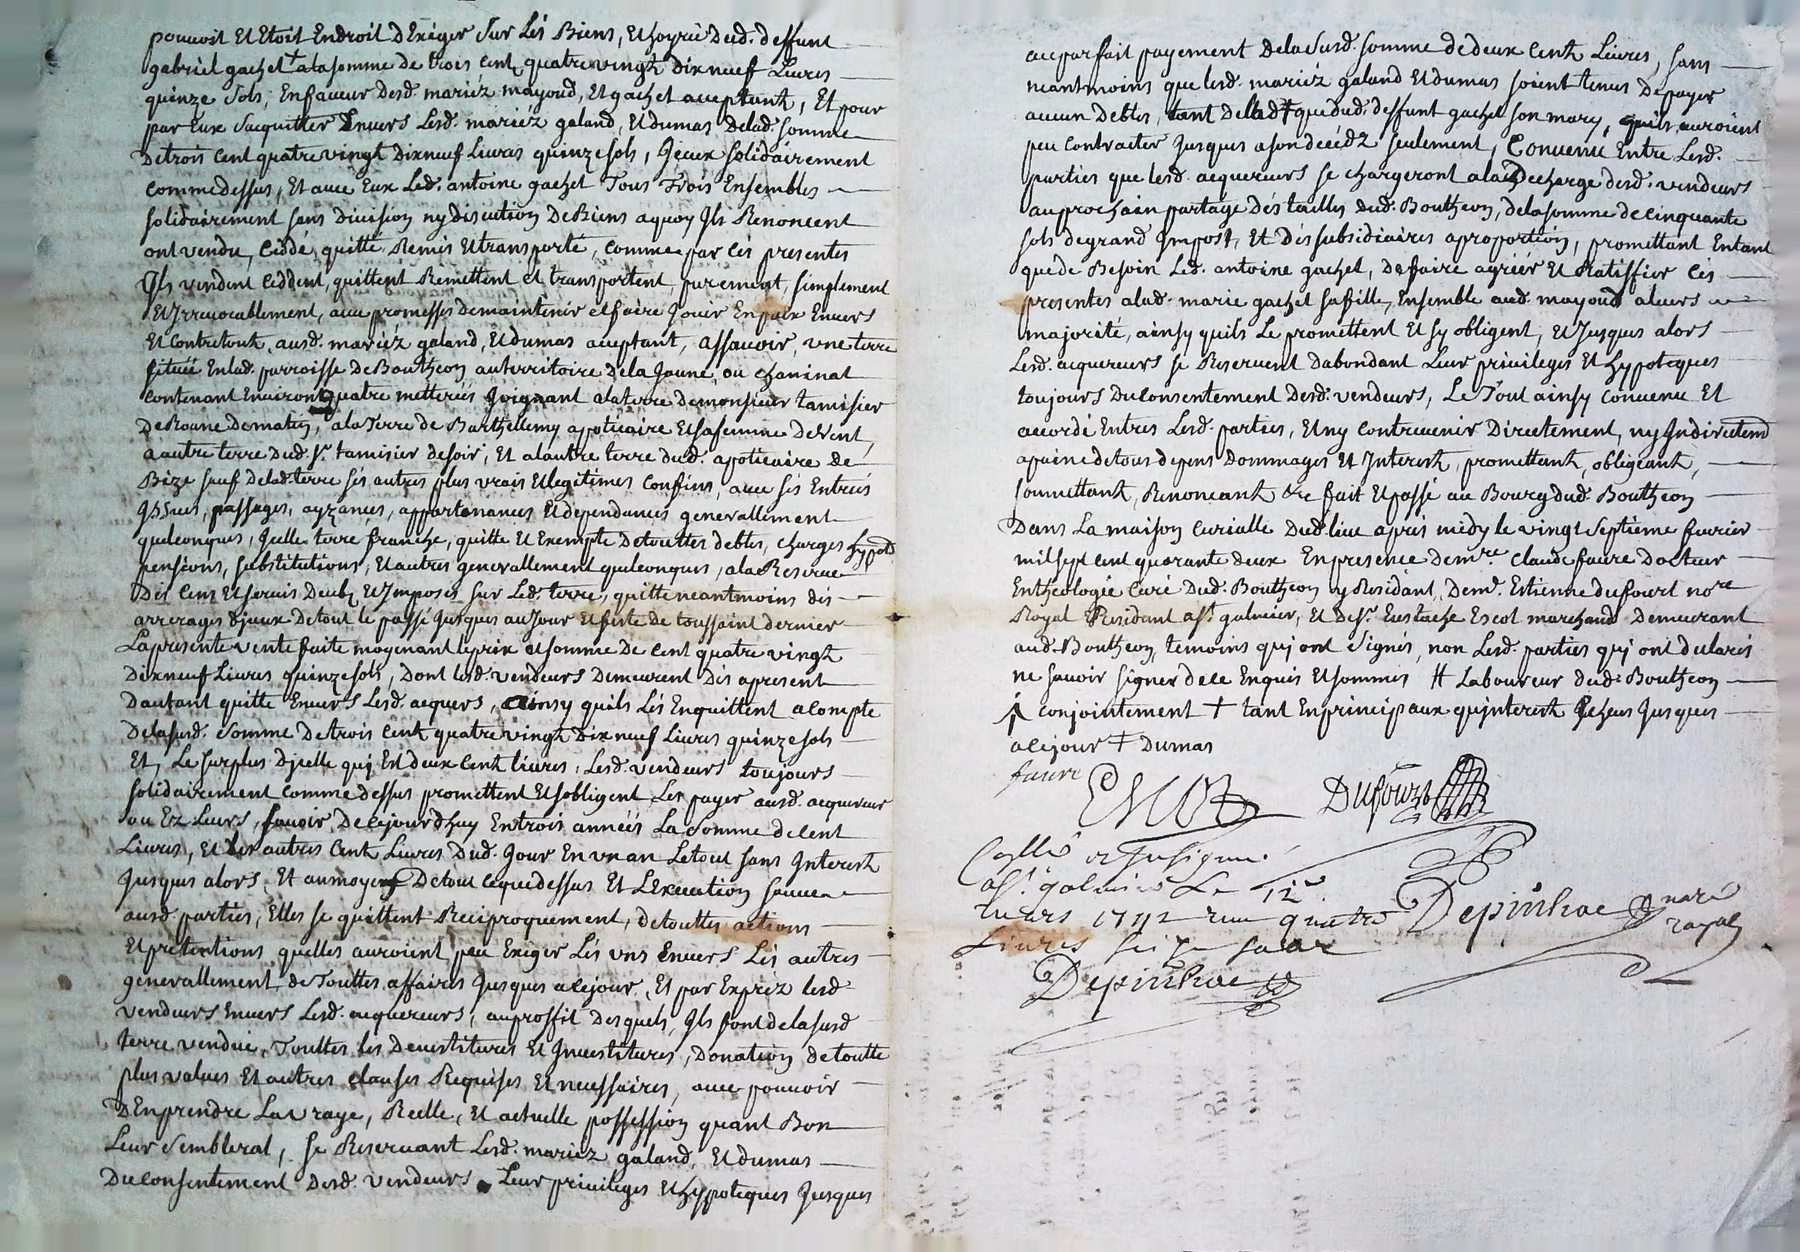 pouvoit Et Etoit Endroit d'Exiger Sur Les Biens, Et hoyrie Dud. deffunt
gabriel gachet + ala somme de trois cent quatre vingt dix neuf Livres
quinze Sols, En faveur desd. mariéz mayoud, Et gachet acceptant, Et pour
par Eux Sacquitter Envers Lesd. mariéz galand, Et dumas delad. somme
De trois cent quatre vingt Dixneuf Livres quinze sols, Jceux solidairement
comme dessus, Et avec Eux Led. antoine gachet Tous Trois Ensembles
solidairement sans division ny discution De Biens a quoy Jls Renoncent
ont vendu, Ceddé, quitté, Remis Et transporté, comme par Ces presentes
Jls vendent Ceddent, quittent Remettent et transportent, purement, simplement
Et Jrrevocablement, avec promesses de maintenir et faire Jouir En paix Envers
Et Contre touts, ausd. mariéz galand, Et dumas acceptant, assavoir, une terre
située Enlad. parroisse de Boutheon au territoire de la Jaune, ou chaninat
contenant Environt quatre metterées Joignant ala terre de monsieur tamisier
De Roane De matin, ala Terre de Barthellemy apoticaire Et sa femme de vent,
a autre terre dud. Sr. tamisier de soir, Et a lautre terre dud. apoticaire de
Bize sauf delad. terre ses autres plus vrais Et legitimes Confins, avec ses Entrées
Jssues, passages, ayzances, appartenances Et dependances generallement
quelconques, Jcelle terre franche, quitte Et Exempte De touttes debtes, charges hypots
pensions, substitutions, Et autres generallement quelconques, ala Reserve
Des Cens Et servis Deubs Et Jmposés sur Led. terre, quitte neantmoins des
arrerages djceux de tout le passé Jusques au Jour Et feste de toussaint dernier
La presente vente faitte moyenant le prix Et somme De cent quatre vingt
Dixneuf Livres quinze sols, Dont lesd. vendeurs Demeurent Dés a present
Dautant quitte Envers Lesd. acquers, ainsy quils Les Enquittent a compte
De la susd. Somme De trois Cent quatre vingt Dixneuf Livres quinze sols
Et, Le surplus Djcelle quj Est deux Cent livres, Lesd. vendeurs toujours
solidairement comme dessus promettent Et sobligent Les payer ausd. acquereur
ou Ez Leurs, savoir, De cejourdhuy En trois années La Somme de cent
Livres, Et Les autres Cent Livres Dud. Jour En un an Le tout sans Jnterest
Jusques alors, Et au moyens De tout ce que dessus Et L'Execution sauve
ausd. parties, Elles se quittent Reciproquement, de touttes actions
Et pretentions quelles auroient peu Exiger Les uns Envers Les autres
generallement de Touttes affaires Jusques a ce jour, Et par Expréz lesd.
vendeurs Envers Lesd. acquereurs, au proffit Desquels, Jls font de la susd.
terre vendüe, Touttes les Devestitures Et Jnvestitures, Donation de toutte
plus values Et autres clauses Requises Et necessaires, avec pouvoir
D'En prendre La vraye, Reelle, Et actuelle possession quant Bon
Leur Semblerat, se Reservant Lesd. mariéz galand, Et dumas
Du consentement desd. vendeurs Leur privileges Et hypoteques Jusques
au parfait payement De la Susd. somme de deux Cent Livres, sans
neantmoins que lesd. mariéz galand Et dumas soient tenus De payer
aucun Debtes, tant delad + que dud. deffunt gachet son mary, quils auroient
peu Contracter Jusques a son decédz seulement, Convenu Entre Lesd.
parties que lesd. acquereurs se chargeront a la Decharge desd. vendeurs
au prochain partage des tailles dud. Boutheon, de la somme de Cinquante
sols de grand Jmpost, Et Des subsidiaires a proportion, promettant Entant
que de Besoin Led. antoine gachet, de faire agriér Et Ratiffier Ces
presentes alad. marie gachet sa fille, Ensemble aud. mayoud a leurs
majorité, ainsy quils Le promettent Et sy obligent, Et Jusques alors
Lesd. acquereurs se Reservent Dabondant Leur privileges Et hypoteques
toujours Du Consentement desd. vendeurs, Le Tout ainsy Convenu Et
accordé Entres Lesd. parties, Et ny contrevenir Directement, ny Jndirectemt
a peine de tous depens Dommages Et Jnterest, promettant, obligeant,
soumettant, Renoncant &c fait Et passé au Bourg dud. Boutheon
Dans La maison Curialle Dud. lieu après midy le vingt Septieme fevrier
mil sept cent quarante deux En presence de mre. Claude faure Docteur
En theologie Curé Dud. Boutheon y Residant, De me. Etienne dufourt nore
Royal Residant a St. galmier, Et de Sr. Eustache Escot marchand Demeurant
aud. Boutheon, temoins quj ont Signés, non Lesd. parties quj ont declarés
ne savoir signer de ce Enquis Et sommés # Laboureur dud. Boutheon
conjointement + tant En principaux qujnterest Echeus Jusques
a ce jour ‡ Dumas
faure Escot Dufourt
Collé et Insinué
a St. galmier Le 12e.
mars 1742 reçu quatre
Livres seize sols
Depinhac
Depinhac nore
royal